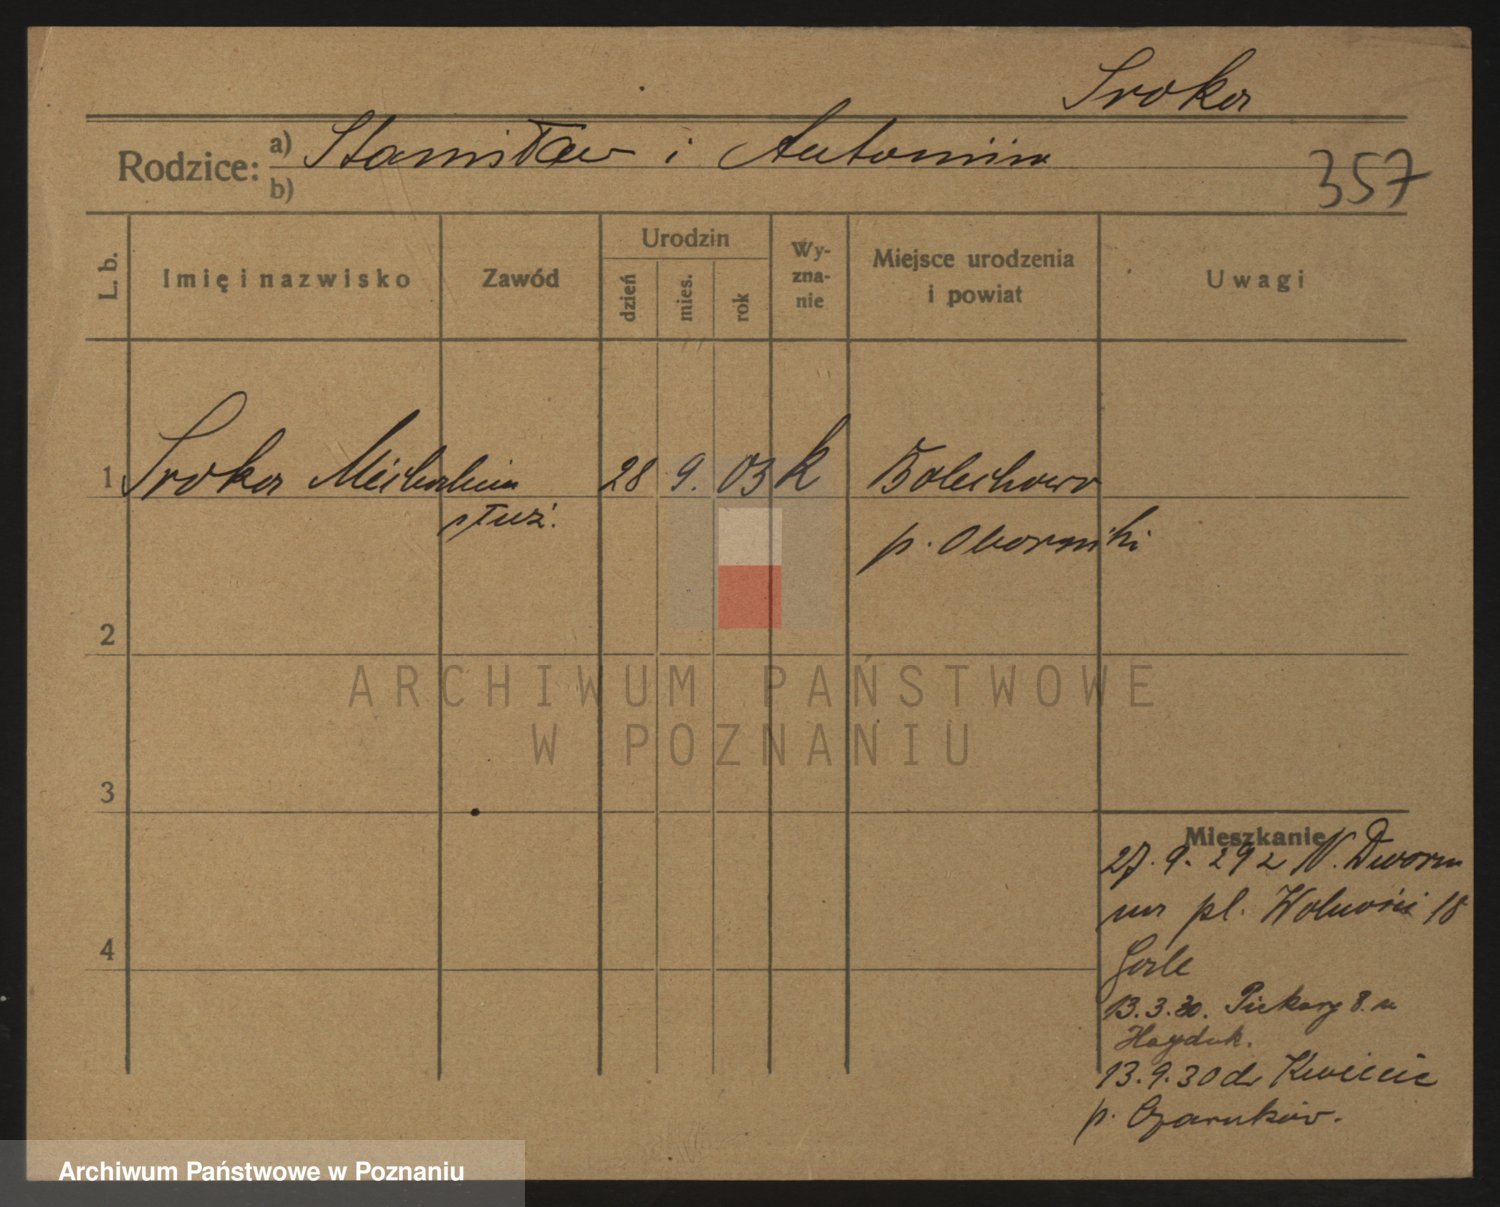 Sroka
Rodzice: a) Stanisław i Antonina
b)
357
L. b.
Imię i nazwisko
Zawód
Urodzin
dzień
mies.
rok
Wy-
zna-
nie
Miejsce urodzenia
i powiat
Uwagi
1 Sroka Michalina 28 9. 03 k Bolechowo
służ. p. Oborniki
2
3
4
ARCHIWUM PAŃSTWOWE
W POZNANIU
Mieszkanie
27. 9. 29 z N. Dworu
na pl. Wolności 18
13. 3. 30. Piekary 8. u
Hayduk.
13. 9. 30 do Kwiecie
p. Czarnków.
Archiwum Państwowe w Poznaniu